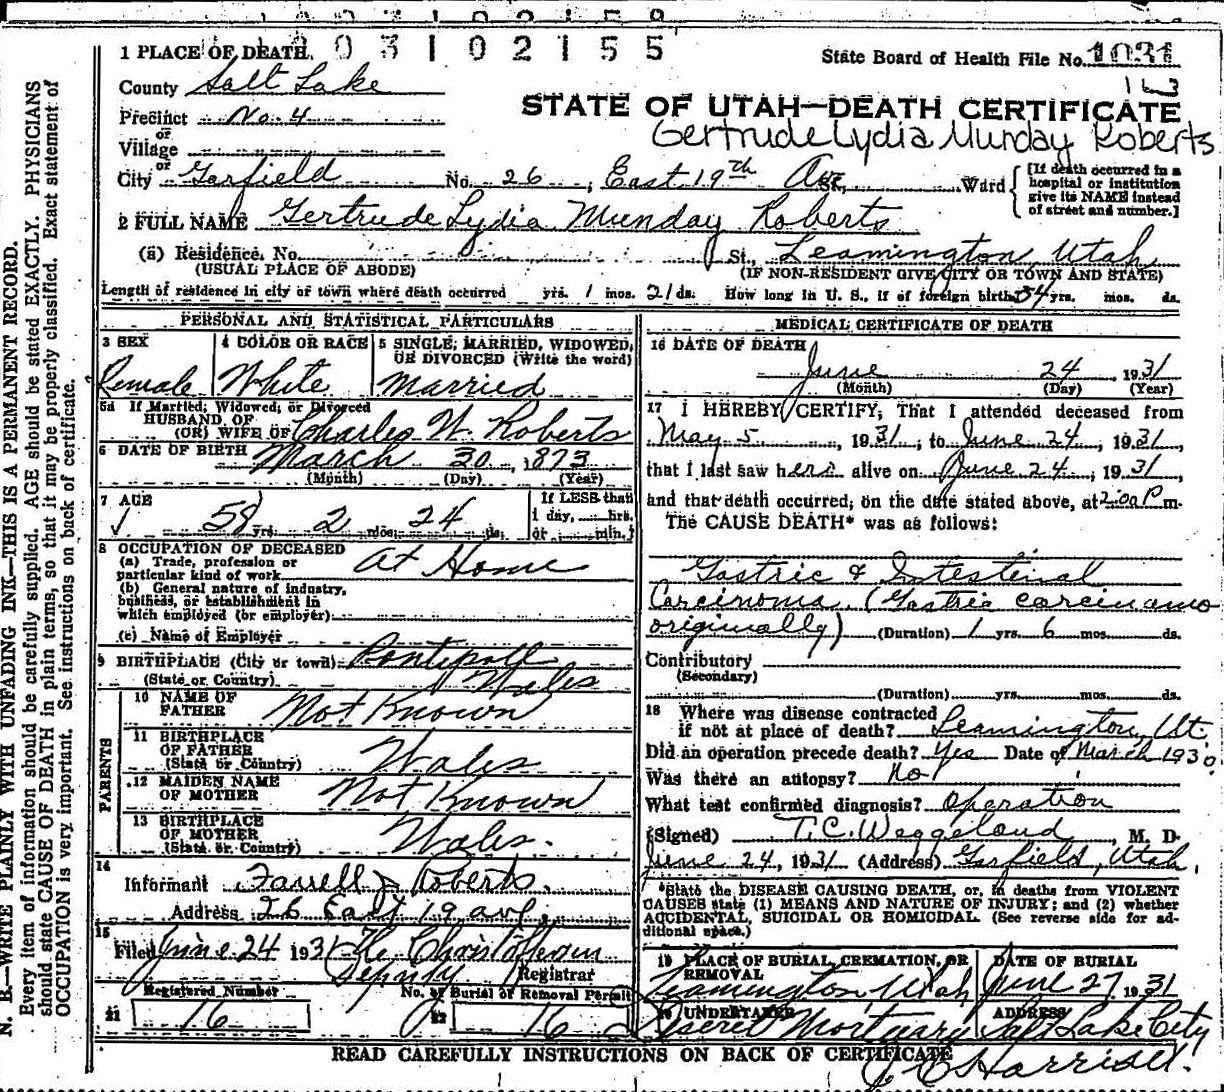 03102155
1 PLACE OF DEATH.
State Board of Health File No. 1031
163
County Salt Lake
STATE OF UTAH—DEATH CERTIFICATE
Precinct No. 4
Gertrude Lydia Munday Roberts
or
Village
or
City Garfield No. 26, East 19th Ave St., Ward
[If death occurred in a hospital or institution give its NAME instead of street and number.]
2 FULL NAME Gertrude Lydia Munday Roberts
(a) Residence. No. St., Leamington, Utah
(USUAL PLACE OF ABODE) (IF NON-RESIDENT GIVE CITY OR TOWN AND STATE)
Length of residence in city or town where death occurred yrs. 1 mos. 21 ds. How long in U. S., if of foreign birth 54 yrs. mos. ds.
PERSONAL AND STATISTICAL PARTICULARS
3 SEX
Female
4 COLOR OR RACE
White
5 SINGLE, MARRIED, WIDOWED, OR DIVORCED (Write the word)
Married
5a If Married, Widowed, or Divorced
HUSBAND OF
(OR) WIFE OF Charles W. Roberts
6 DATE OF BIRTH March 30, 1873
(Month) (Day) (Year)
7 AGE
58 yrs. 2 mos. 24 ds.
If LESS than
1 day, hrs.
or min.
8 OCCUPATION OF DECEASED
(a) Trade, profession or
particular kind of work At Home
(b) General nature of industry,
business, or establishment in
which employed (or employer)
(c) Name of Employer
9 BIRTHPLACE (City or town)
(State or Country) Wales
PARENTS
10 NAME OF
FATHER Not Known
11 BIRTHPLACE
OF FATHER
(State or Country) Wales
12 MAIDEN NAME
OF MOTHER Not Known
13 BIRTHPLACE
OF MOTHER
(State or Country) Wales.
14
Informant Farrell Roberts
Address 26 East 19 ave.
15
Filed June 24 1931
Deputy Registrar
Registered Number
21 16
No. of Burial or Removal Permit
22 16
MEDICAL CERTIFICATE OF DEATH
16 DATE OF DEATH
June 24, 1931
(Month) (Day) (Year)
17 I HEREBY CERTIFY, That I attended deceased from
May 5, 1931, to June 24, 1931,
that I last saw her alive on June 24, 1931,
and that death occurred, on the date stated above, at 2:00 P m.
The CAUSE DEATH* was as follows:
Gastric & Intestinal
Carcinoma. (Gastric carcinamo
originally) (Duration) 1 yrs. 6 mos. ds.
Contributory
(Secondary)
(Duration) yrs. mos. ds.
18 Where was disease contracted
if not at place of death? Leamington, Ut.
Did an operation precede death? Yes Date of March 1930
Was there an autopsy? No
What test confirmed diagnosis? Operation
(Signed) T.C. Weggeland, M. D.
June 24, 1931 (Address) Garfield, Utah.
*State the DISEASE CAUSING DEATH, or, in deaths from VIOLENT
CAUSES state (1) MEANS AND NATURE OF INJURY; and (2) whether
ACCIDENTAL, SUICIDAL OR HOMICIDAL. (See reverse side for ad-
ditional space.)
19 PLACE OF BURIAL, CREMATION, OR
REMOVAL
Leamington, Utah
DATE OF BURIAL
June 27, 1931
20 UNDERTAKER
Deseret Mortuary
ADDRESS
Salt Lake City
READ CAREFULLY INSTRUCTIONS ON BACK OF CERTIFICATE
N. B.—WRITE PLAINLY WITH UNFADING INK—THIS IS A PERMANENT RECORD.
Every item of information should be carefully supplied. AGE should be stated EXACTLY. PHYSICIANS
should state CAUSE OF DEATH in plain terms, so that it may be properly classified. Exact statement of
OCCUPATION is very important. See instructions on back of certificate.